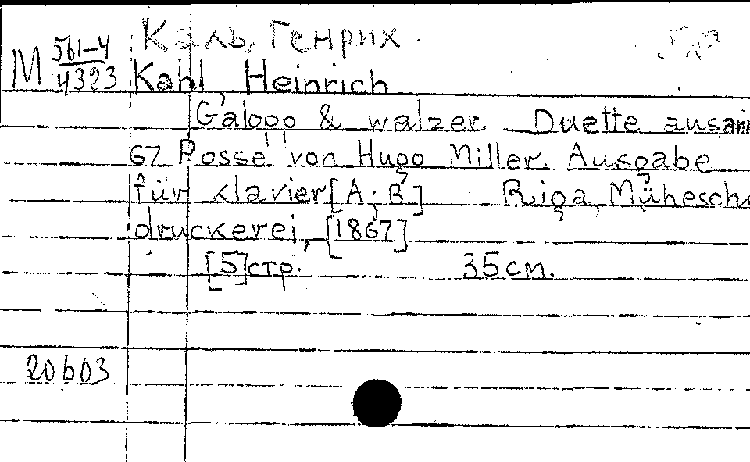 Каль, Генрих.
М 561-4/4323
Kahl, Heinrich
Galopp & walzer. Duette aus
67 Posse von Hugo Miller. Ausgabe
für Klavier [A; B] Riga,
druckerei, [1867]
[5] стр. 35 см.
20603